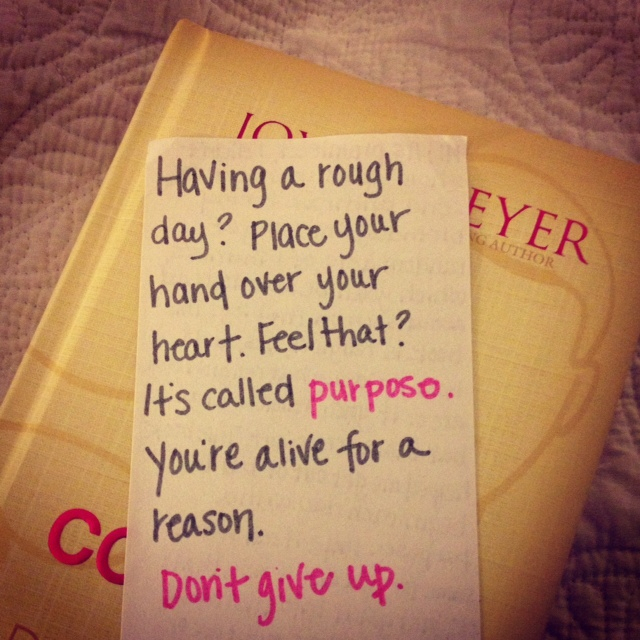 JO
EYER
NG AUTHOR
Having a rough
day? Place your
hand over your
heart. Feel that?
It's called purpose.
You're alive for a
reason.
Don't give up.
CO
D